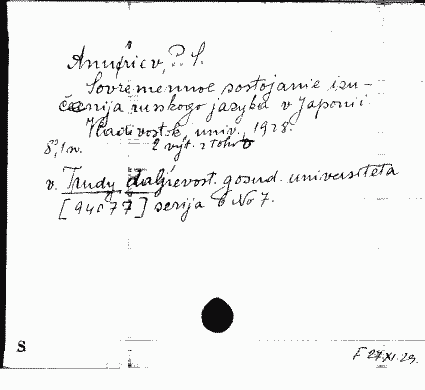 Anufriev, P. S.
Sovremennoe sostojanie izu-
čenija russkogo jazyka v Japonii
Vladivostok, univ., 1928.
8°, 1 n. 2 výt. z toho
v. Trudy daljnevost. gosud. universiteta
[94077] serija 6 No 7.
S
F 27.XI.29.